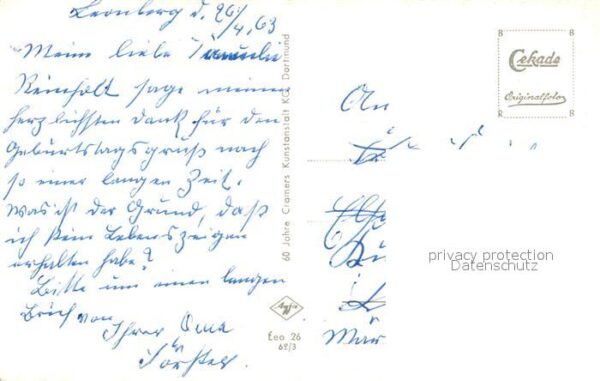 Leonberg d. 26/4.63
Meine liebe Familie
Reinholt sage meinen
herzlichsten Dank für den
Geburtstagsgruß nach
so einer langen Zeit.
Was ist der Grund, daß
ich kein Lebenszeigen
erhalten habe?
Bitte um einen langen
Brief von
Ihrer Oma
60 Jahre Cramers Kunstanstalt KG, Dortmund
Agfa
Eeo 26
62/3
8 8
Cekade
Originalfoto
8 8
An
privacy protection
Datenschutz